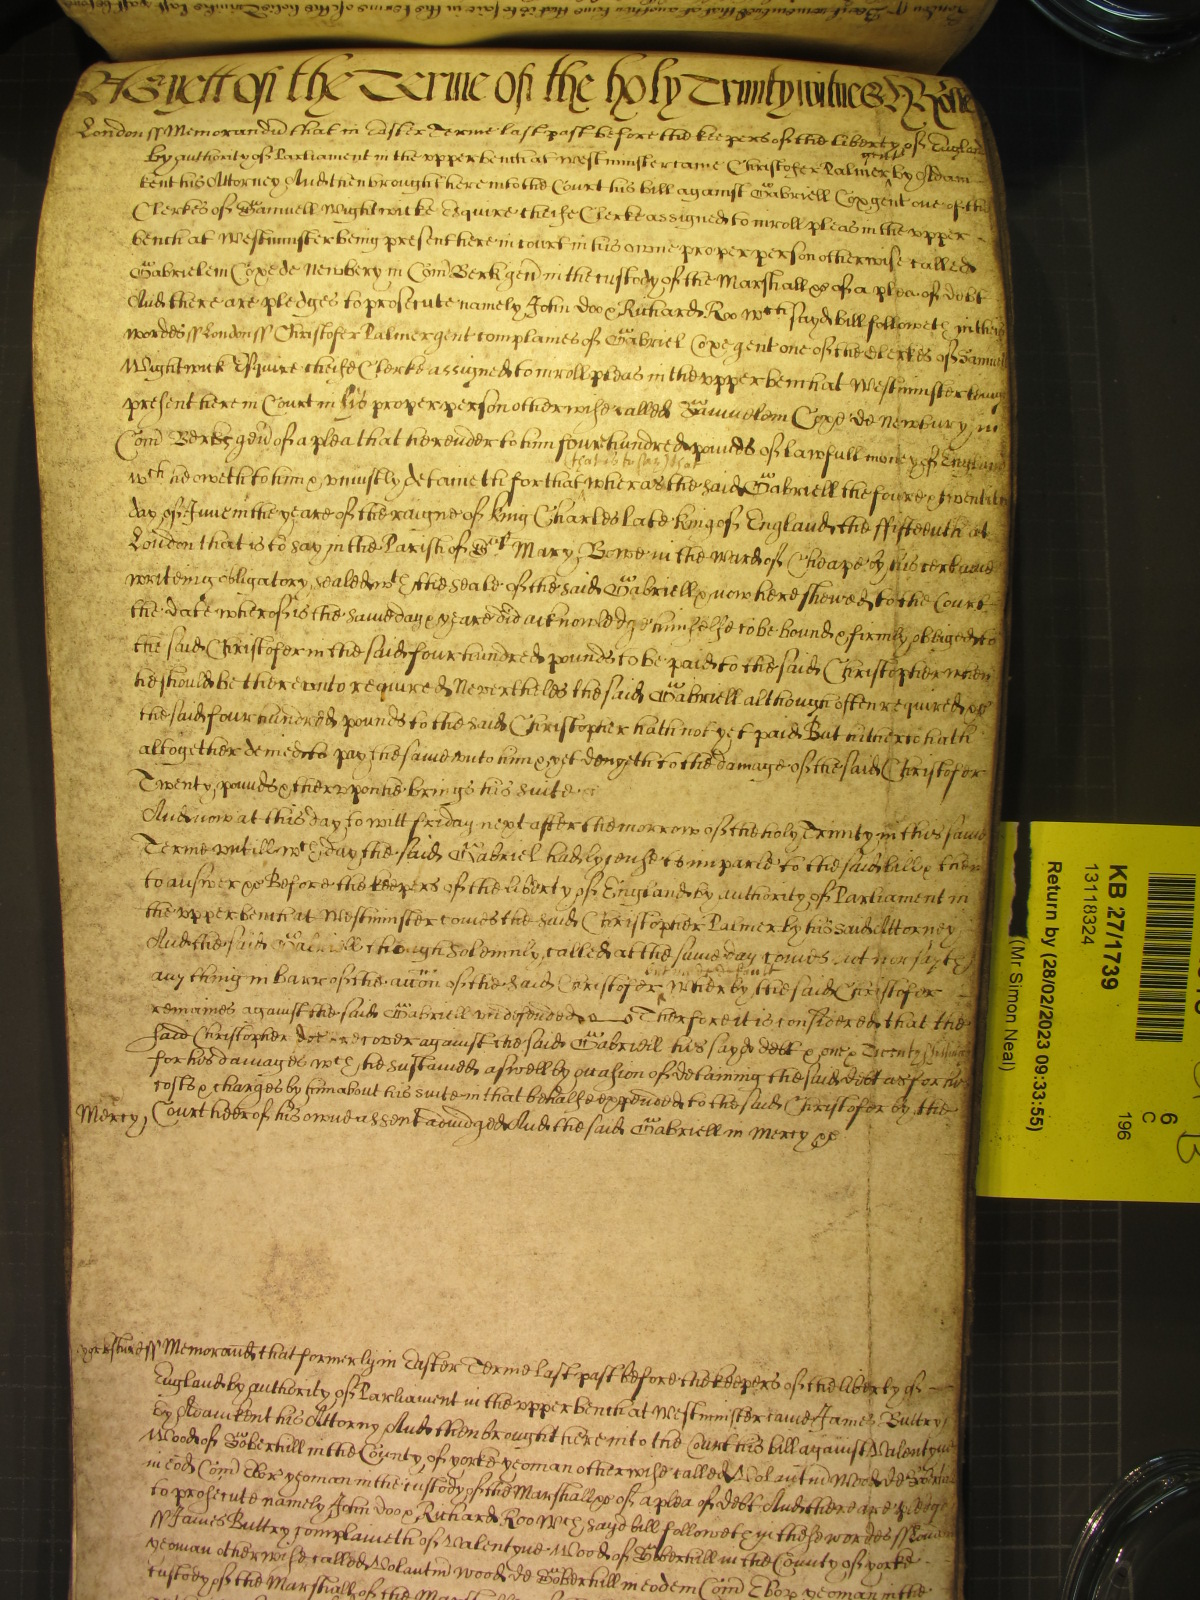 As yett of the Terme of the holy Trinity witnes H Rolle
London ss Memorandu that in Easter Terme last past before the keepers of the liberty of England
by authority of Parliament in the upper bench at Westminster came Christofer Palmer gent by Adam
Kent his Attorney And then brought here into the Court his bill against Gabriell Cox gent one of the
Clerkes of Samuell Wightwicke Esquire cheife Clerke assigned to inroll pleas in the upper
bench at Westminster being present here in court in his owne proper person otherwise called
Gabrielem Coxe de Newbery in Com Berk gen in the custody of the Marshall &c of a plea of debt
And there are pledges to prosecute namely John Doo & Richard Roo wch sayd bill followeth in theis
wordes ss London ss Christofer Palmer gent complaines of Gabriel Coxe gent one of the Clerkes of Samuel
Wightwick Esquire cheife Clerke assigned to inroll pleas in the upper bench at Westminster being
present here in Court in his proper person otherwise called Samuelem Coxe de Newbury in
Com Berks gen of a plea that he render to him foure hundred pounds of lawfull money of England
wch he oweth to him & uniustly detaineth for that (that is to say) that whereas the said Gabriell the foure & twentieth
day of June in the yeare of the raigne of King Charles late King of England the fifteenth at
London that is to say in the Parish of St Mary Bowe in the ward of Cheape by his certaine
writeing obligatory sealed wth the seale of the said Gabriell & now here shewed to the Court
the date whereof is the same day & yeare did acknowledge himselfe to be bound & firmly obliged to
the said Christofer in the said four hundred pounds to be paid to the said Christopher when
he should be thereunto required Nevertheles the said Gabriell although often required &c
the said four hundred pounds to the said Christopher hath not yet paid But hitherto hath
altogether denied to pay the same unto him & yet denyeth to the damage of the said Christofer
Twenty pounds & thereupon he brings his suite
And now at this day to witt friday next after the morrow of the holy Trinity in this same
Terme untill wch day the said Gabriel had lycense to imparle to the said bill & then
to answer &c Before the keepers of the liberty of England by authority of Parliament in
the upper bench at Westminster comes the said Christopher Palmer by his said Attorney
And the said Gabriell though solemnly called at the same day comes not nor sayth
any thing in barr of the accon of the said Christofer whereby the said Christofer
remaines against the said Gabriell undefended Therefore it is considered that the
said Christopher doe recover against the said Gabriell his sayd debt & one & Twenty shillings
for his damages wch he sustained aswell by occasion of detaining the said debt as for his
costs & charges by him about his suite in that behalfe expended to the said Christofer by the
Mercy Court heer of his owne assent adiudged And the said Gabriell in Mercy &c
yorkshire ss Memorand that formerly in Easter Terme last past before the keepers of the liberty of
England by authority of Parliament in the upper bench at Westminster came James Buttry
by Adam Kent his Attorny And then brought here into the Court his bill against Valentyne
Wood of Soberhill in the County of yorke yeoman otherwise called Valentin Wood de
in eod Com Ebor yeoman in the custody of the Marshall &c of a plea of debt And there are pledges
to prosecute namely John Doo & Richard Roo wch sayd bill followeth in these wordes ss
ss James Buttry complaineth of Valentyne Wood of Soberhill in the County of yorke
yeoman otherwise called Valentin Wood de Soberhill in eodem Com Ebor yeoman in the
custody of the Marshall of the
KB 27/1739
13118324
Return by (28/02/2023 09:33:55)
(Mr Simon Neal)
6
C
196
B